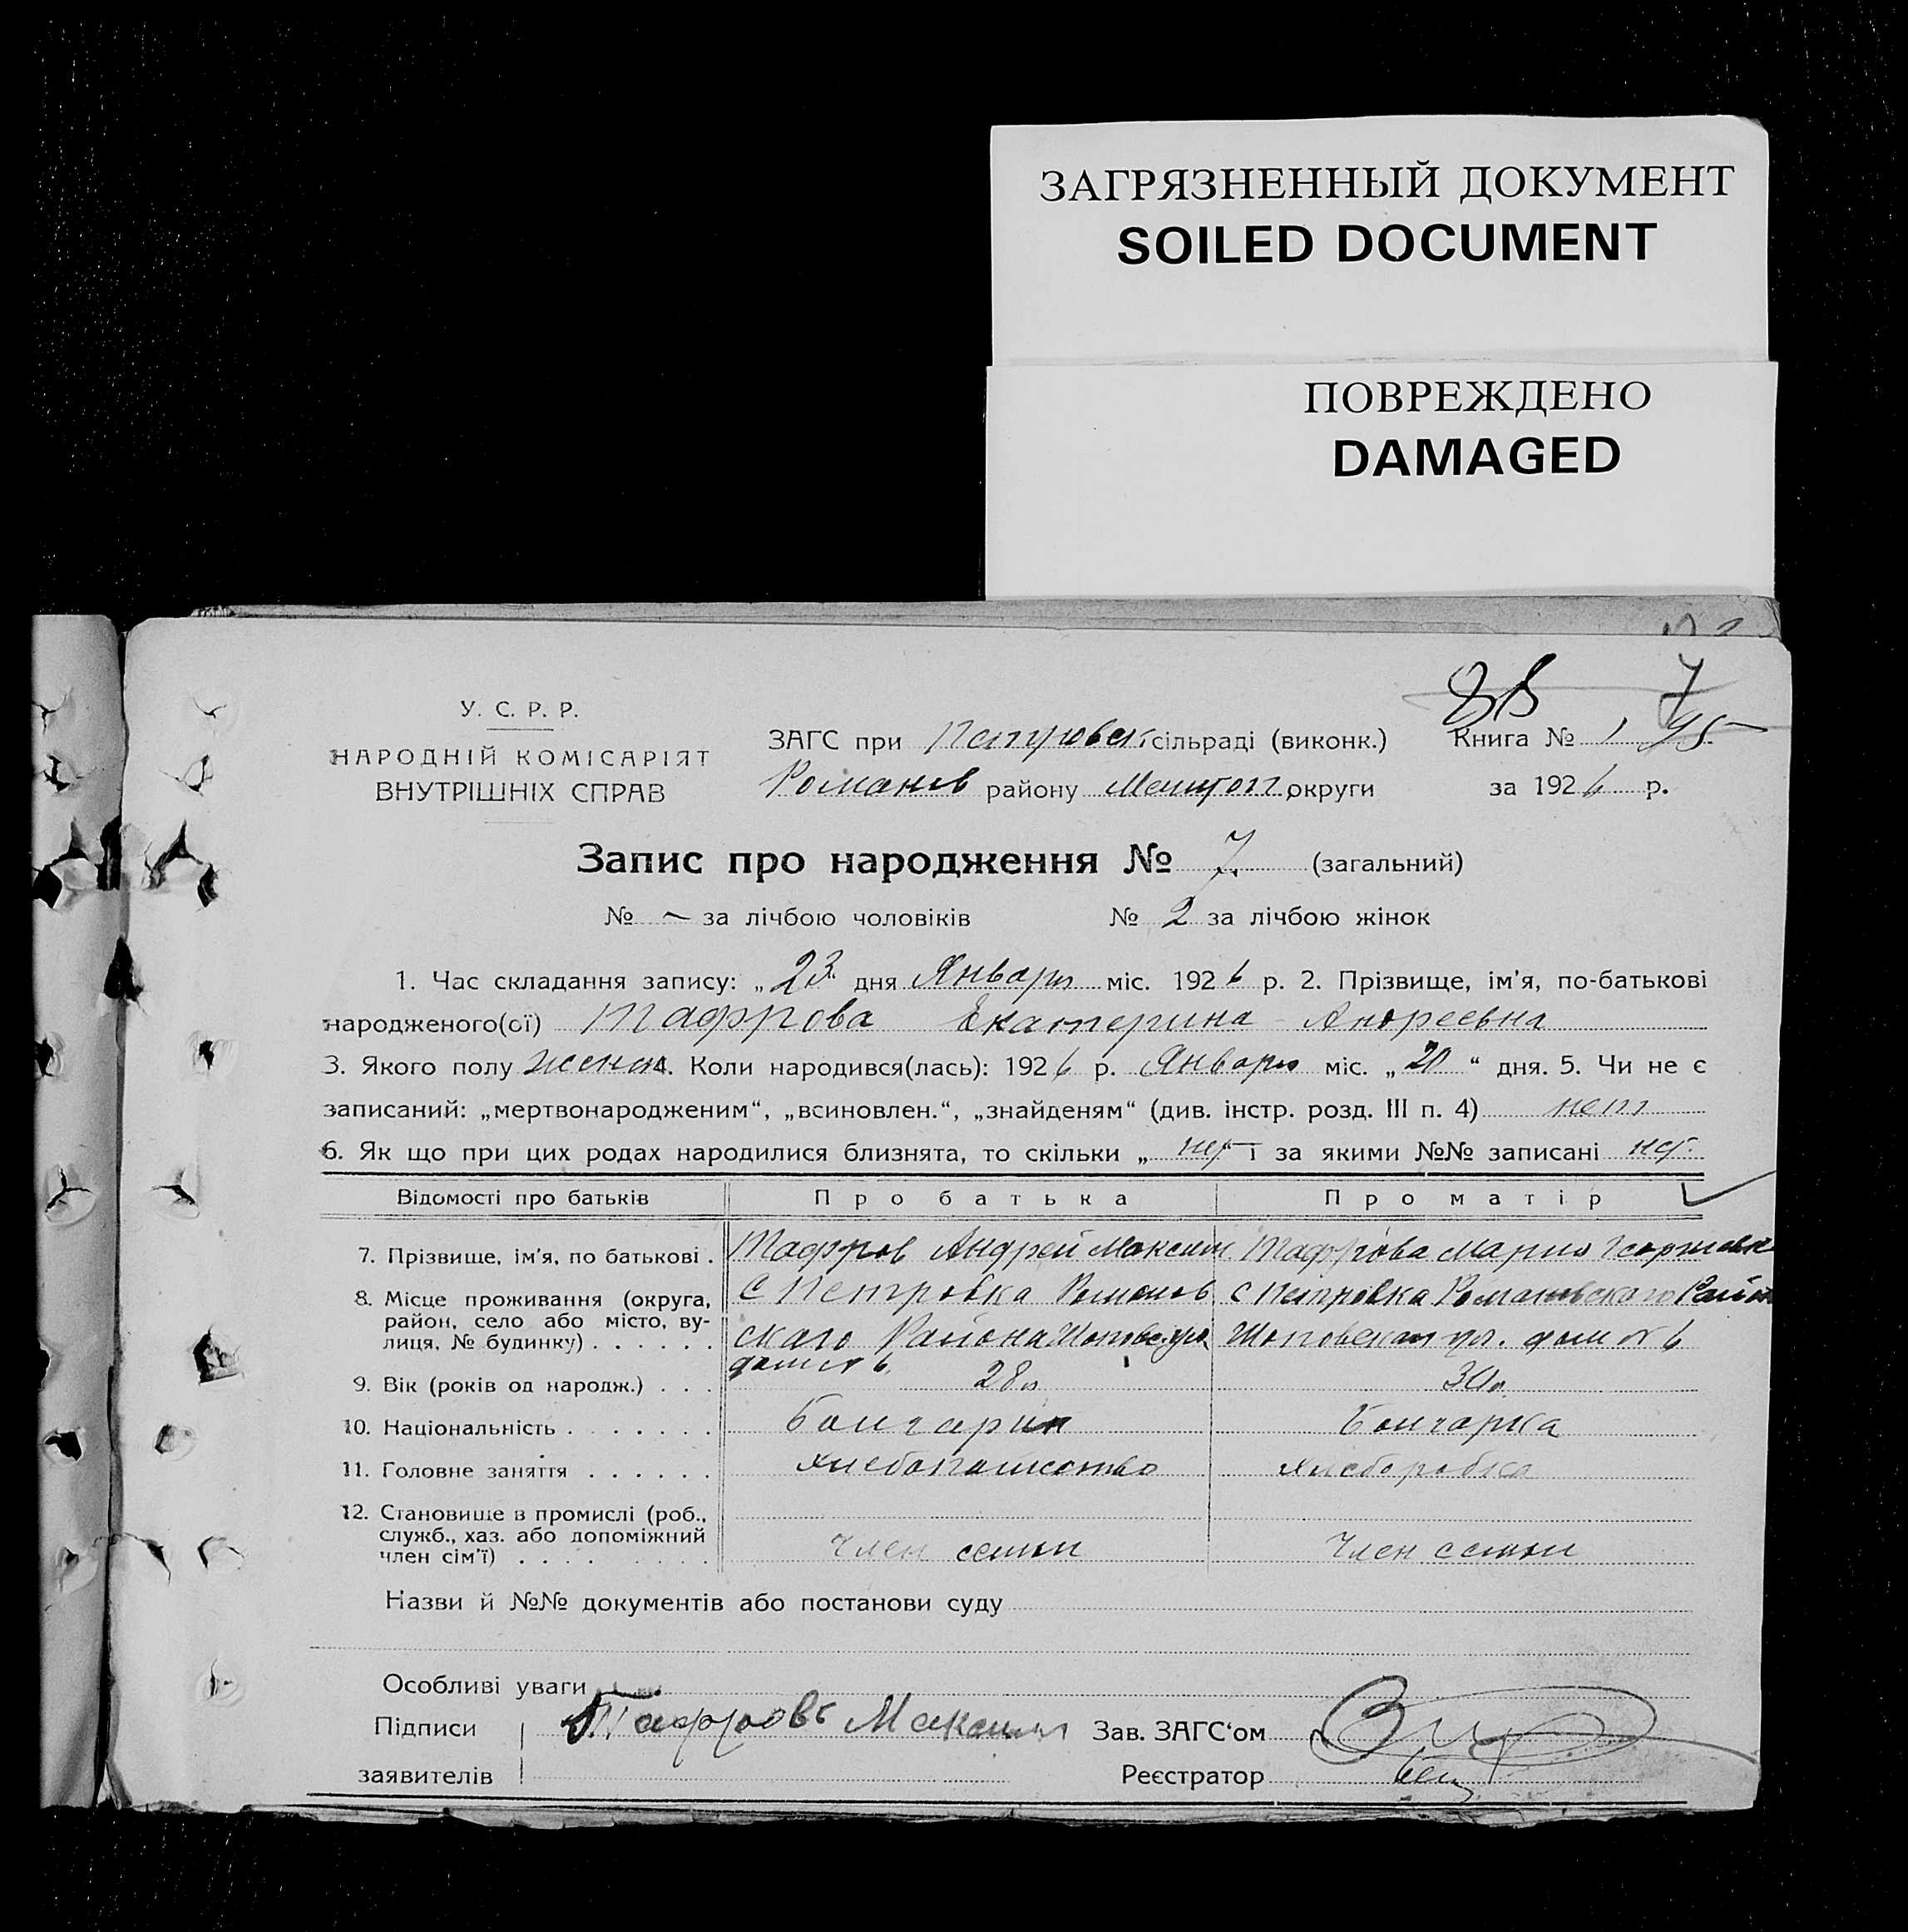 ЗАГРЯЗНЕННЫЙ ДОКУМЕНТ
SOILED DOCUMENT
ПОВРЕЖДЕНО
DAMAGED
7
У. С. Р. Р.
НАРОДНІЙ КОМІСАРІЯТ
ВНУТРІШНІХ СПРАВ
ЗАГС при Петровск сільраді (виконк.) Книга № 1
Романов району Мелитоп округи за 1926 р.
Запис про народження № 7. (загальний)
№ – за лічбою чоловіків № 2 за лічбою жінок
1. Час складання запису: „23 дня Января міс. 1926 р. 2. Прізвище, ім'я, по-батькові
народженого(ої) Тафрова Екатерина Андреевна
3. Якого полу женск 4. Коли народився(лась): 1926 р. Января міс. „20“ дня. 5. Чи не є
записаний: „мертвонародженим“, „всиновлен.“, „знайденям“ (див. інстр. розд. III п. 4) нет
6. Як що при цих родах народилися близнята, то скільки „нет“ і за якими №№ записані нет.
Відомості про батьків Про батька Про матір
7. Прізвище, ім'я, по батькові . Тафров Андрей Максим. Тафрова Мария Георгиевна
8. Місце проживання (округа, район, село або місто, вулиця, № будинку) . . . . . .
С Петровка Романовского Района дом № 6
С Петровка Романовского Район ул. дом № 6
9. Вік (років од народж.) . . . 28 л. 30 л.
10. Національність . . . . . . . Болгарин Болгарка
11. Головне заняття . . . . . . Хлебопашество Хлеборобка
12. Становище в промислі (роб.,
служб., хаз. або допоміжний
член сім'ї) . . . . . . . . . Член семьи Член семьи
Назви й №№ документів або постанови суду
Особливі уваги
Підписи Тафровъ Максим Зав. ЗАГС'ом
заявителів Реєстратор